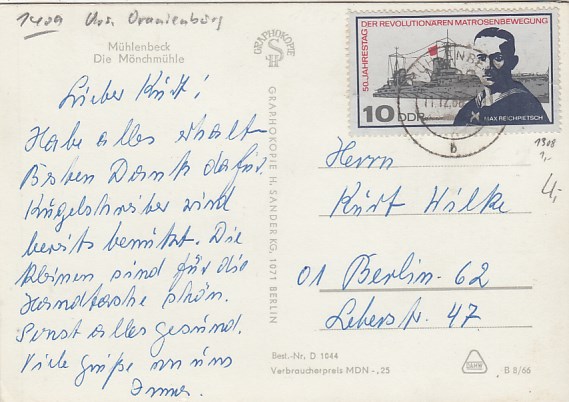 1409 Krs. Oranienburg
Mühlenbeck
Die Mönchmühle
GRAPHOKOPIE
H S
50. JAHRESTAG DER REVOLUTIONÄREN MATROSENBEWEGUNG
10 DDR
MAX REICHPIETSCH
MÜHLENBECK
11.12.68
b
Lieber Kurt!
Habe alles erhalt.
Besten Dank dafür.
Kugelschreiber wird
bereits benützt. Die
kleinen sind für die
Handtasche schön.
Sonst alles gesund.
Viele Grüße von uns
Immer.
GRAPHOKOPIE H. SANDER KG, 1071 BERLIN
1308
1,-
4,-
Herrn
Kurt Wilke
01 Berlin-62
Leberstr. 47
Best.-Nr. D 1044
Verbraucherpreis MDN -,25
B 8/66